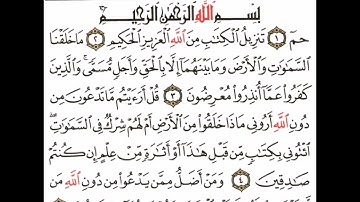 بِسْمِ اللَّهِ الرَّحْمَٰنِ الرَّحِيمِ
حمٓ ١ تَنزِيلُ الْكِتَابِ مِنَ اللَّهِ الْعَزِيزِ الْحَكِيمِ ٢ مَا خَلَقْنَا
السَّمَاوَاتِ وَالْأَرْضَ وَمَا بَيْنَهُمَا إِلَّا بِالْحَقِّ وَأَجَلٍ مُّسَمًّى وَالَّذِينَ
كَفَرُوا عَمَّا أُنذِرُوا مُعْرِضُونَ ٣ قُلْ أَرَءَيْتُم مَّا تَدْعُونَ مِن
دُونِ اللَّهِ أَرُونِي مَاذَا خَلَقُوا مِنَ الْأَرْضِ أَمْ لَهُمْ شِرْكٌ فِي السَّمَاوَاتِ
ائْتُونِي بِكِتَابٍ مِّن قَبْلِ هَٰذَا أَوْ أَثَارَةٍ مِّنْ عِلْمٍ إِن كُنتُمْ
صَادِقِينَ ٤ وَمَنْ أَضَلُّ مِمَّن يَدْعُوا مِن دُونِ اللَّهِ مَن